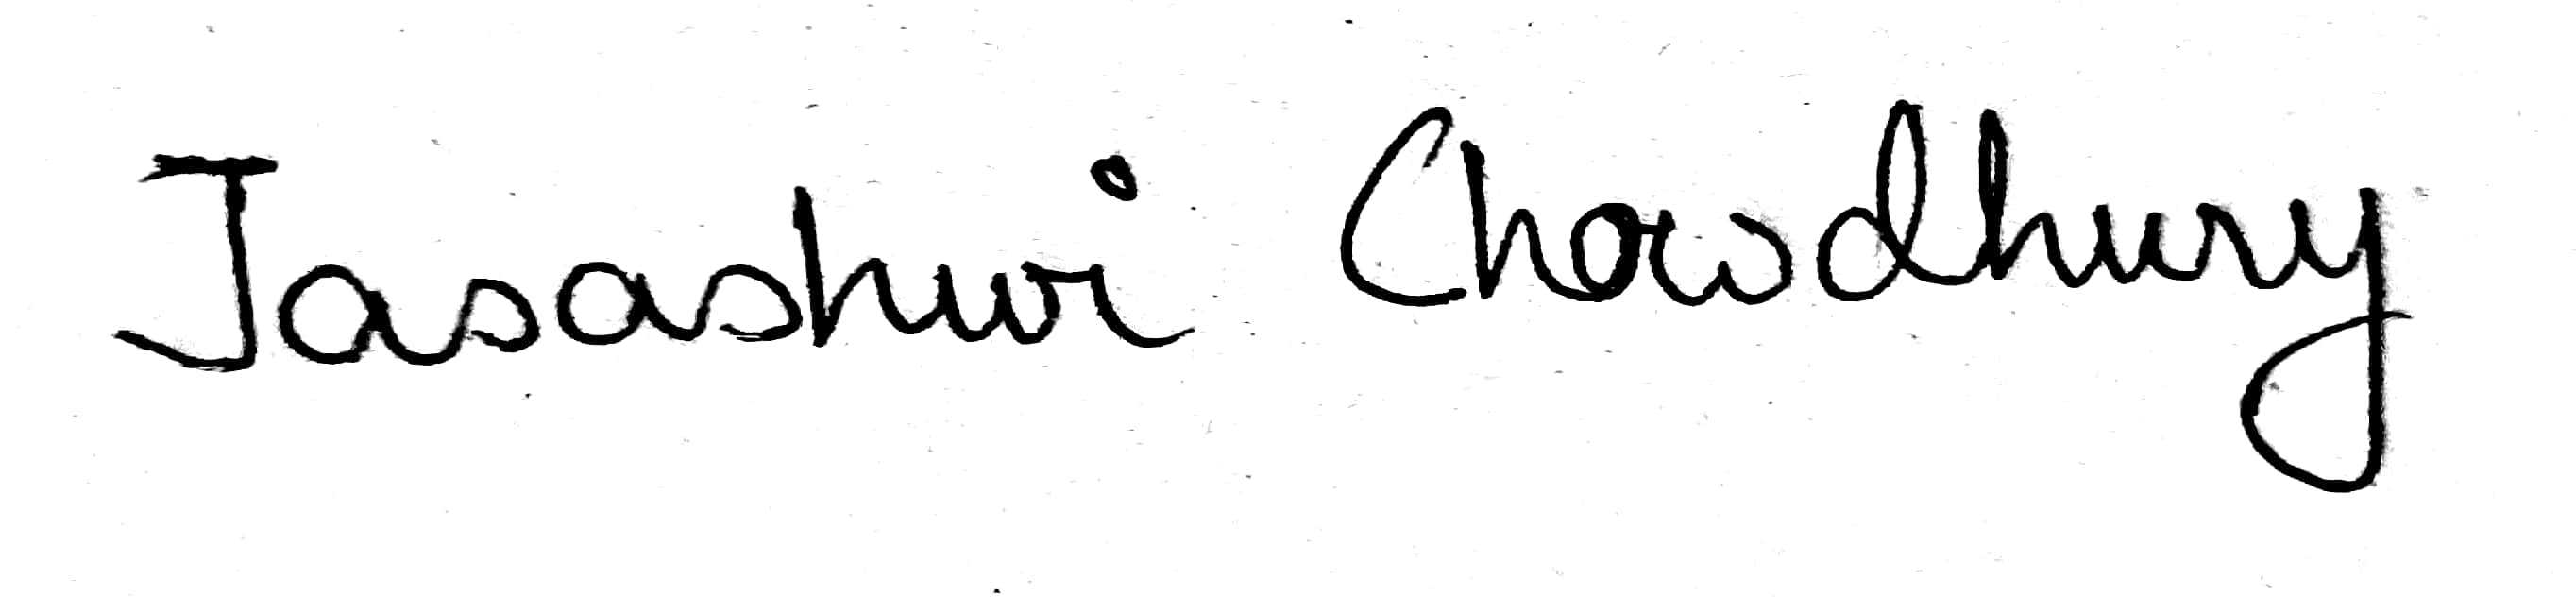 Jasashwi Chowdhury